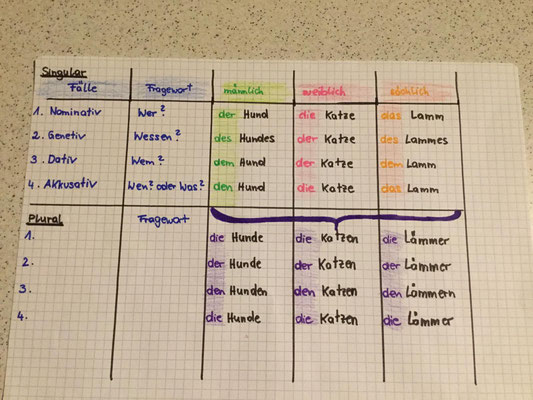 Singular
Fälle Fragewort männlich weiblich sächlich
1. Nominativ Wer? der Hund die Katze das Lamm
2. Genetiv Wessen? des Hundes der Katze des Lammes
3. Dativ Wem? dem Hund der Katze dem Lamm
4. Akkusativ Wen? oder Was? den Hund die Katze das Lamm
Plural Fragewort
1. die Hunde die Katzen die Lämmer
2. der Hunde der Katzen der Lämmer
3. den Hunden den Katzen den Lämmern
4. die Hunde die Katzen die Lämmer